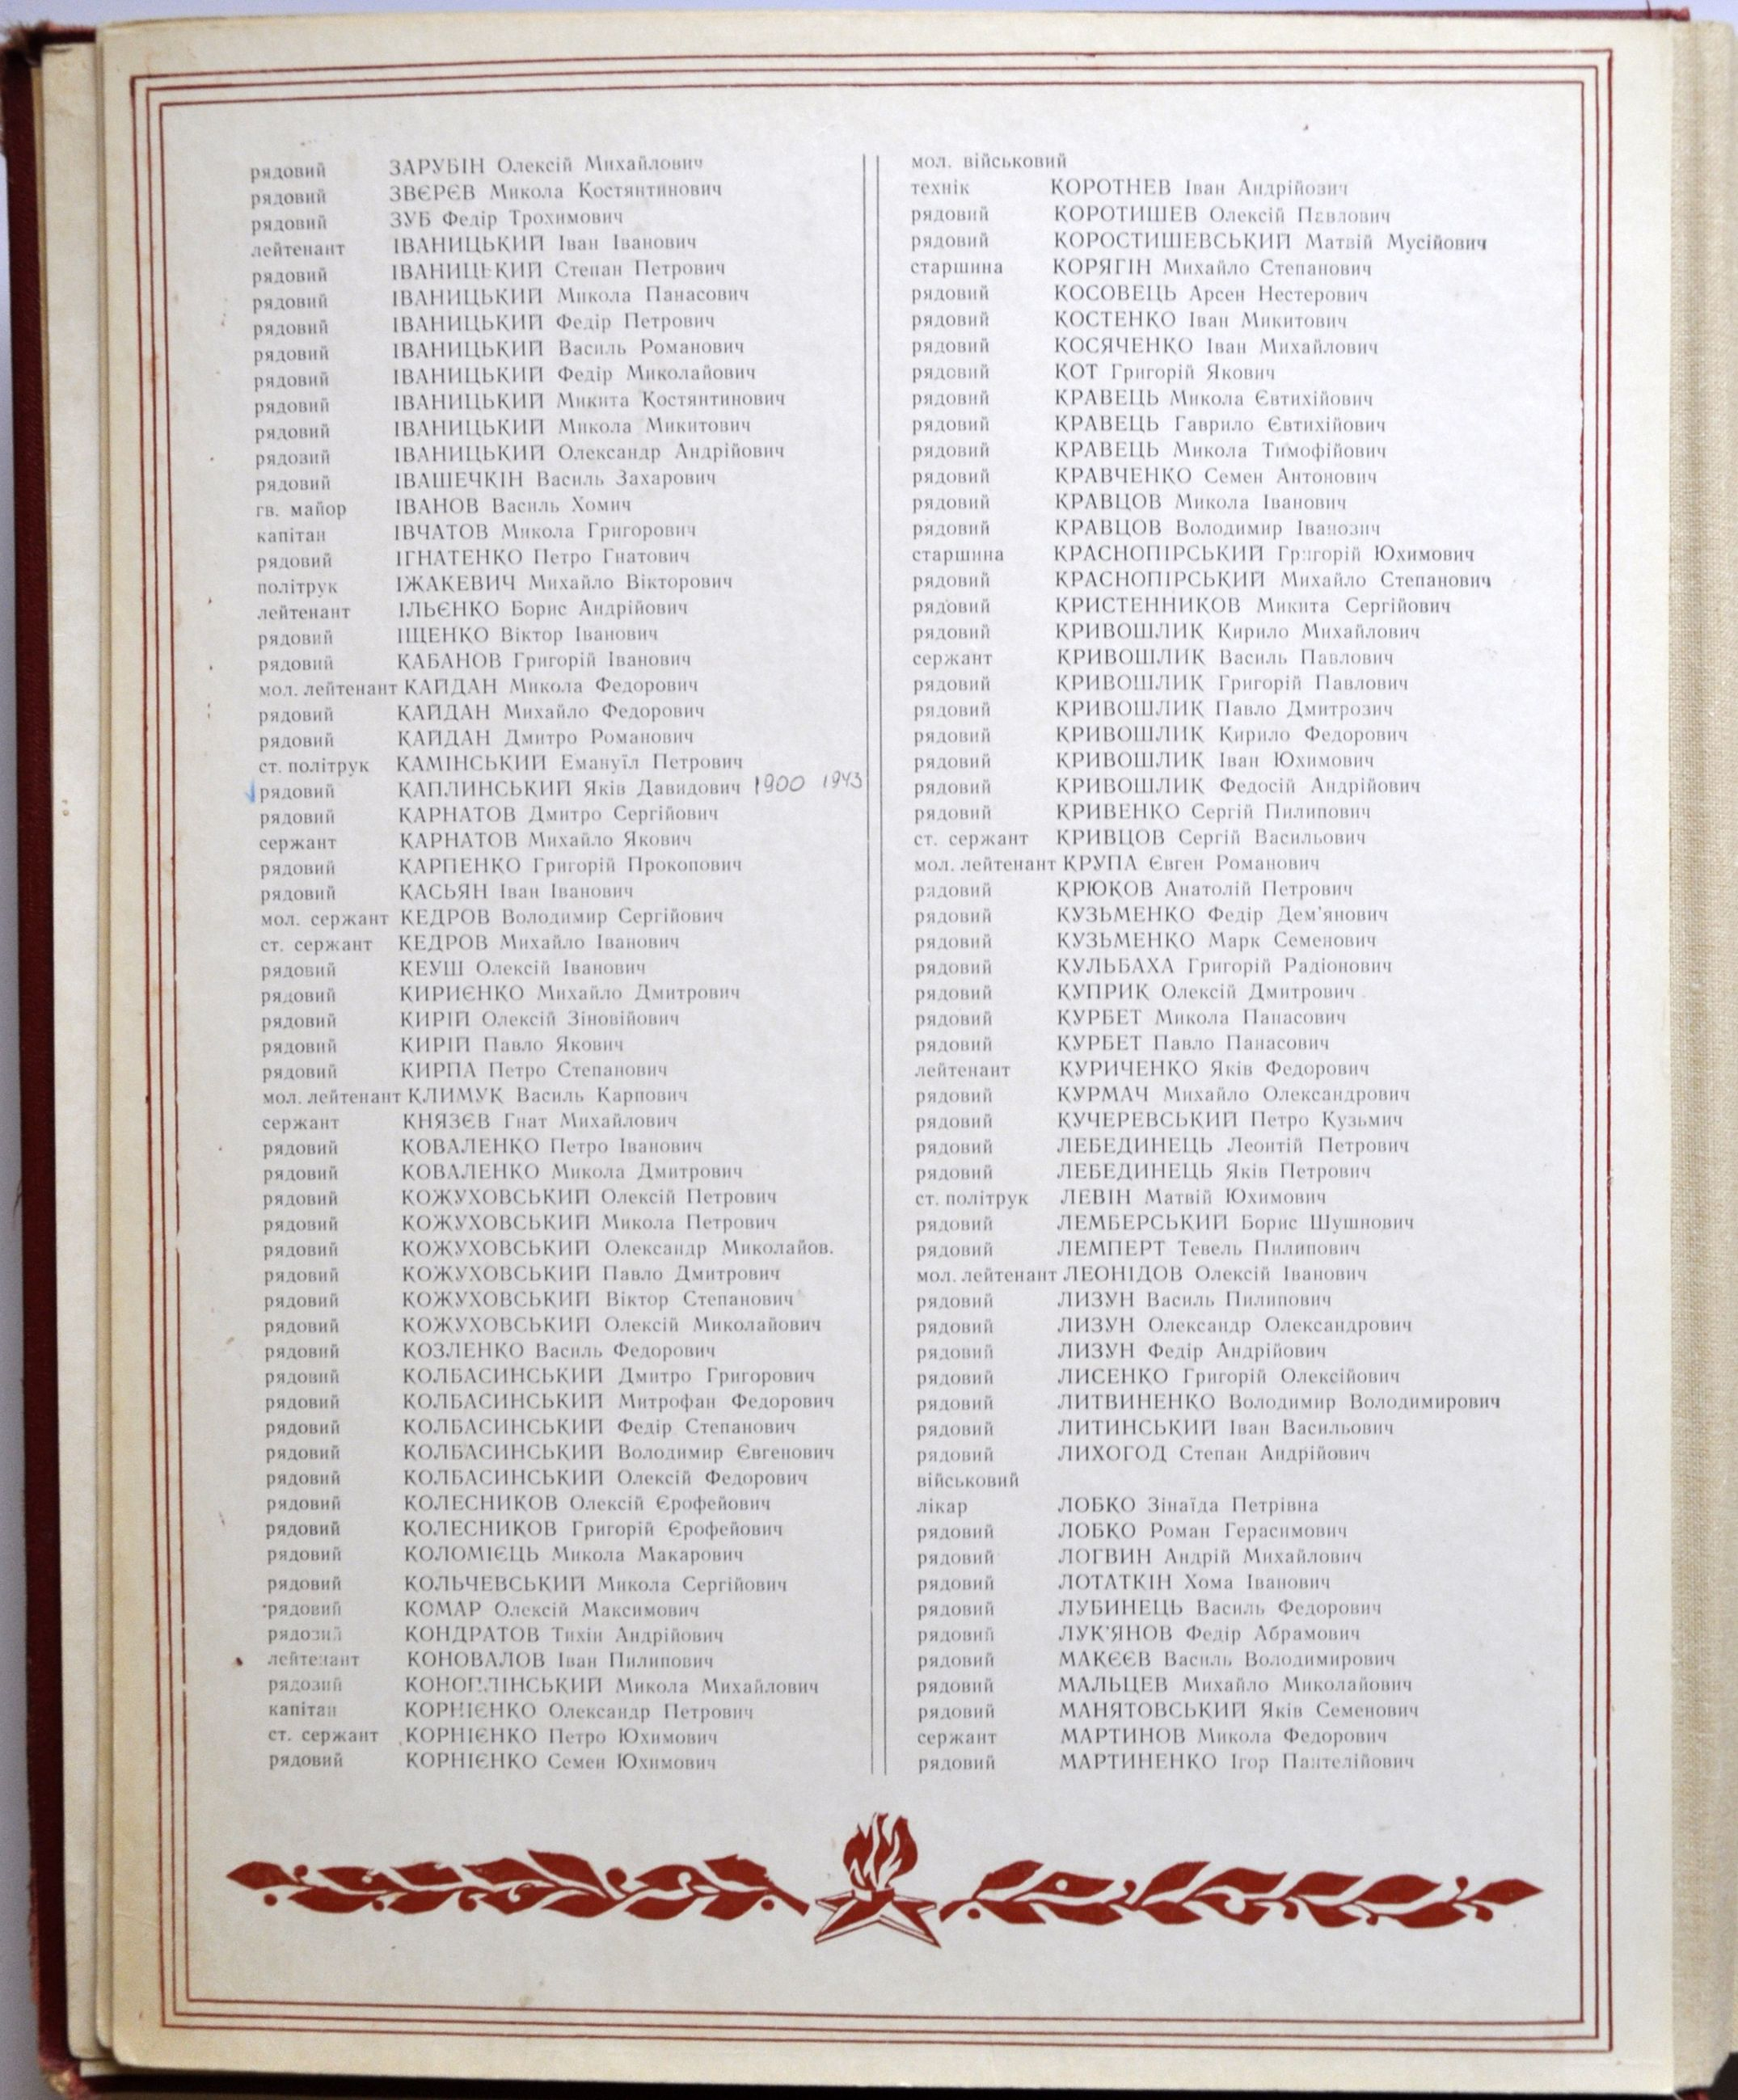 рядовий ЗАРУБІН Олексій Михайлович
рядовий ЗВЄРЄВ Микола Костянтинович
рядовий ЗУБ Федір Трохимович
лейтенант ІВАНИЦЬКИЙ Іван Іванович
рядовий ІВАНИЦЬКИЙ Степан Петрович
рядовий ІВАНИЦЬКИЙ Микола Панасович
рядовий ІВАНИЦЬКИЙ Федір Петрович
рядовий ІВАНИЦЬКИЙ Василь Романович
рядовий ІВАНИЦЬКИЙ Федір Миколайович
рядовий ІВАНИЦЬКИЙ Микита Костянтинович
рядовий ІВАНИЦЬКИЙ Микола Микитович
рядовий ІВАНИЦЬКИЙ Олександр Андрійович
рядовий ІВАШЕЧКІН Василь Захарович
гв. майор ІВАНОВ Василь Хомич
капітан ІВЧАТОВ Микола Григорович
рядовий ІГНАТЕНКО Петро Гнатович
політрук ІЖАКЕВИЧ Михайло Вікторович
лейтенант ІЛЬЄНКО Борис Андрійович
рядовий ІЩЕНКО Віктор Іванович
рядовий КАБАНОВ Григорій Іванович
мол. лейтенант КАЙДАН Микола Федорович
рядовий КАЙДАН Михайло Федорович
рядовий КАЙДАН Дмитро Романович
ст. політрук КАМІНСЬКИЙ Емануїл Петрович
рядовий КАПЛИНСЬКИЙ Яків Давидович 1900 1943
рядовий КАРНАТОВ Дмитро Сергійович
сержант КАРНАТОВ Михайло Якович
рядовий КАРПЕНКО Григорій Прокопович
рядовий КАСЬЯН Іван Іванович
мол. сержант КЕДРОВ Володимир Сергійович
ст. сержант КЕДРОВ Михайло Іванович
рядовий КЕУШ Олексій Іванович
рядовий КИРИЄНКО Михайло Дмитрович
рядовий КИРІЙ Олексій Зіновійович
рядовий КИРІЙ Павло Якович
рядовий КИРПА Петро Степанович
мол. лейтенант КЛИМУК Василь Карпович
сержант КНЯЗЄВ Гнат Михайлович
рядовий КОВАЛЕНКО Петро Іванович
рядовий КОВАЛЕНКО Микола Дмитрович
рядовий КОЖУХОВСЬКИЙ Олексій Петрович
рядовий КОЖУХОВСЬКИЙ Микола Петрович
рядовий КОЖУХОВСЬКИЙ Олександр Миколайов.
рядовий КОЖУХОВСЬКИЙ Павло Дмитрович
рядовий КОЖУХОВСЬКИЙ Віктор Степанович
рядовий КОЖУХОВСЬКИЙ Олексій Миколайович
рядовий КОЗЛЕНКО Василь Федорович
рядовий КОЛБАСИНСЬКИЙ Дмитро Григорович
рядовий КОЛБАСИНСЬКИЙ Митрофан Федорович
рядовий КОЛБАСИНСЬКИЙ Федір Степанович
рядовий КОЛБАСИНСЬКИЙ Володимир Євгенович
рядовий КОЛБАСИНСЬКИЙ Олексій Федорович
рядовий КОЛЕСНИКОВ Олексій Єрофейович
рядовий КОЛЕСНИКОВ Григорій Єрофейович
рядовий КОЛОМІЄЦЬ Микола Макарович
рядовий КОЛЬЧЕВСЬКИЙ Микола Сергійович
рядовий КОМАР Олексій Максимович
рядовий КОНДРАТОВ Тихін Андрійович
лейтенант КОНОВАЛОВ Іван Пилипович
рядовий КОНОПЛІНСЬКИЙ Микола Михайлович
капітан КОРНІЄНКО Олександр Петрович
ст. сержант КОРНІЄНКО Петро Юхимович
рядовий КОРНІЄНКО Семен Юхимович
мол. військовий
технік КОРОТНЕВ Іван Андрійович
рядовий КОРОТИШЕВ Олексій Павлович
рядовий КОРОСТИШЕВСЬКИЙ Матвій Мусійович
старшина КОРЯГІН Михайло Степанович
рядовий КОСОВЕЦЬ Арсен Нестерович
рядовий КОСТЕНКО Іван Микитович
рядовий КОСЯЧЕНКО Іван Михайлович
рядовий КОТ Григорій Якович
рядовий КРАВЕЦЬ Микола Євтихійович
рядовий КРАВЕЦЬ Гаврило Євтихійович
рядовий КРАВЕЦЬ Микола Тимофійович
рядовий КРАВЧЕНКО Семен Антонович
рядовий КРАВЦОВ Микола Іванович
рядовий КРАВЦОВ Володимир Іванович
старшина КРАСНОПІРСЬКИЙ Григорій Юхимович
рядовий КРАСНОПІРСЬКИЙ Михайло Степанович
рядовий КРИСТЕННИКОВ Микита Сергійович
рядовий КРИВОШЛИК Кирило Михайлович
сержант КРИВОШЛИК Василь Павлович
рядовий КРИВОШЛИК Григорій Павлович
рядовий КРИВОШЛИК Павло Дмитрович
рядовий КРИВОШЛИК Кирило Федорович
рядовий КРИВОШЛИК Іван Юхимович
рядовий КРИВОШЛИК Федосій Андрійович
рядовий КРИВЕНКО Сергій Пилипович
ст. сержант КРИВЦОВ Сергій Васильович
мол. лейтенант КРУПА Євген Романович
рядовий КРЮКОВ Анатолій Петрович
рядовий КУЗЬМЕНКО Федір Дем'янович
рядовий КУЗЬМЕНКО Марк Семенович
рядовий КУЛЬБАХА Григорій Радіонович
рядовий КУПРИК Олексій Дмитрович
рядовий КУРБЕТ Микола Панасович
рядовий КУРБЕТ Павло Панасович
лейтенант КУРИЧЕНКО Яків Федорович
рядовий КУРМАЧ Михайло Олександрович
рядовий КУЧЕРЕВСЬКИЙ Петро Кузьмич
рядовий ЛЕБЕДИНЕЦЬ Леонтій Петрович
рядовий ЛЕБЕДИНЕЦЬ Яків Петрович
ст. політрук ЛЕВІН Матвій Юхимович
рядовий ЛЕМБЕРСЬКИЙ Борис Шушнович
рядовий ЛЕМПЕРТ Тевель Пилипович
мол. лейтенант ЛЕОНІДОВ Олексій Іванович
рядовий ЛИЗУН Василь Пилипович
рядовий ЛИЗУН Олександр Олександрович
рядовий ЛИЗУН Федір Андрійович
рядовий ЛИСЕНКО Григорій Олексійович
рядовий ЛИТВИНЕНКО Володимир Володимирович
рядовий ЛИТИНСЬКИЙ Іван Васильович
рядовий ЛИХОГОД Степан Андрійович
військовий
лікар ЛОБКО Зінаїда Петрівна
рядовий ЛОБКО Роман Герасимович
рядовий ЛОГВИН Андрій Михайлович
рядовий ЛОТАТКІН Хома Іванович
рядовий ЛУБИНЕЦЬ Василь Федорович
рядовий ЛУК'ЯНОВ Федір Абрамович
рядовий МАКЄЄВ Василь Володимирович
рядовий МАЛЬЦЕВ Михайло Миколайович
рядовий МАНЯТОВСЬКИЙ Яків Семенович
сержант МАРТИНОВ Микола Федорович
рядовий МАРТИНЕНКО Ігор Пантелійович